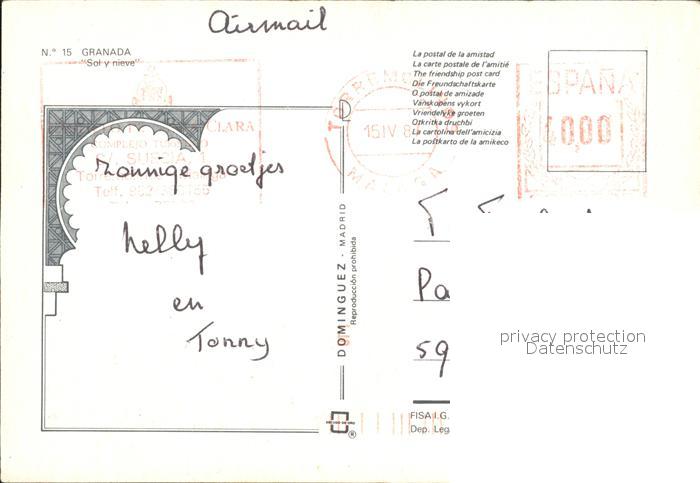 Airmail
N.° 15 GRANADA
"Sol y nieve"
La postal de la amistad
La carte postale de l'amitié
The friendship post card
Die Freundschaftskarte
O postal de amizade
Vänskapens vykort
Vriendelyke groeten
Otkritka druchbi
La cartolina dell'amicizia
La postkarto de la amikeco
ESPAÑA
40,00
15 IV 8
MALAGA
CLARA
SUECIA, 1
Zonnige groetjes
Nelly
en
Tonny
DOMINGUEZ - MADRID
Reproducción prohibida
T
Pa
59
privacy protection
Datenschutz
FISA I.G.
Dep. Leg